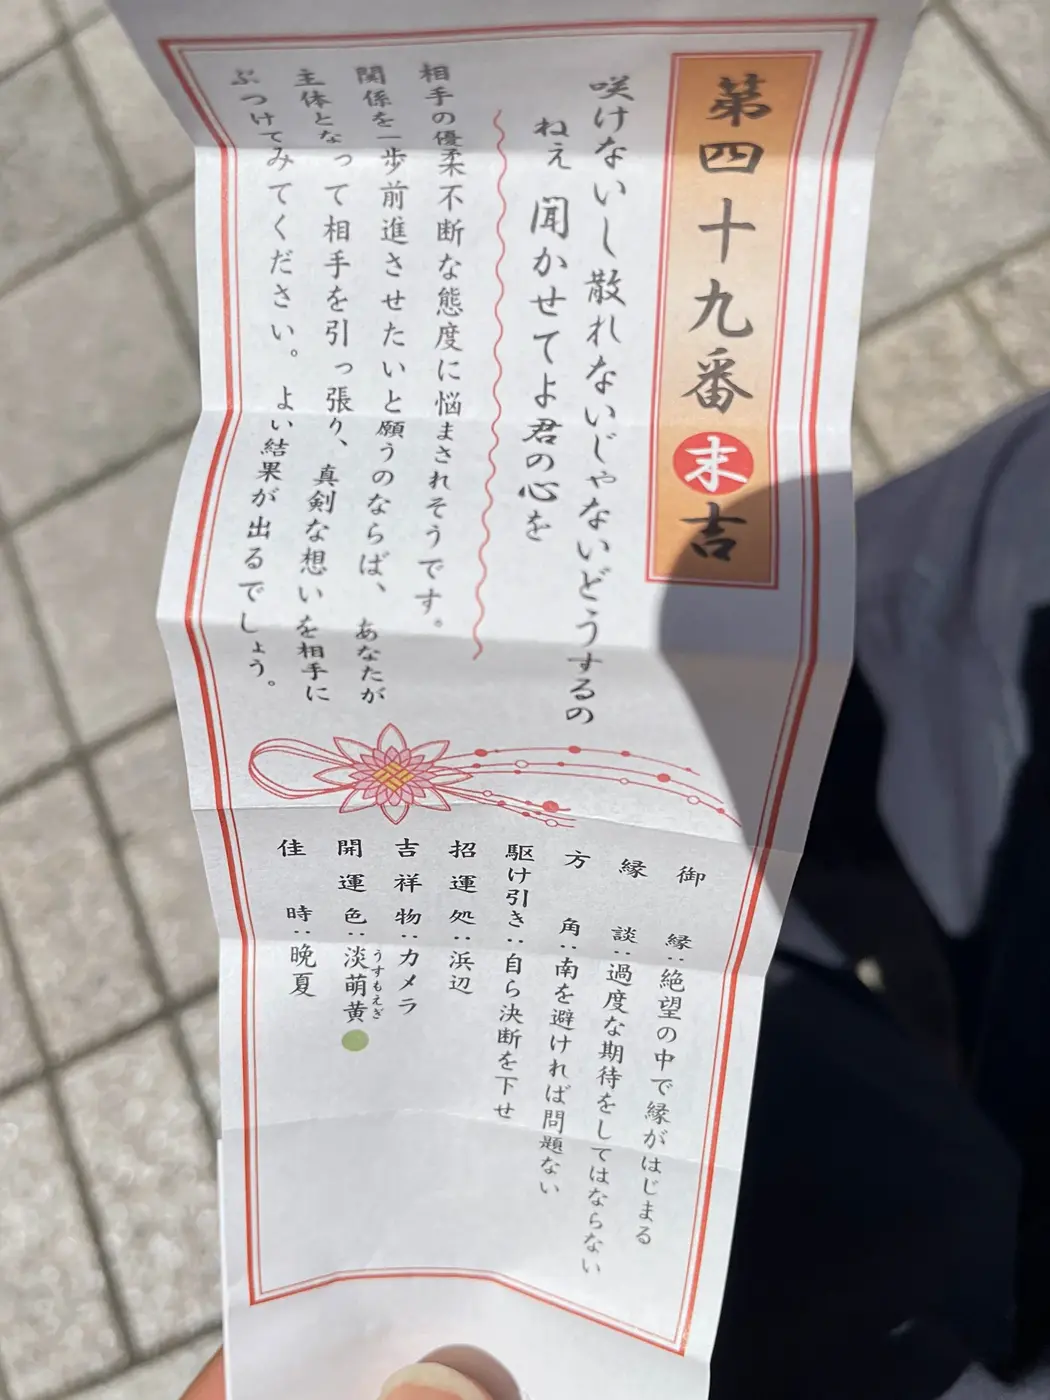 第四十九番 末吉
咲けないし散れないじゃないどうするの
ねえ 聞かせてよ君の心を
相手の優柔不断な態度に悩まされそうです。
関係を一歩前進させたいと願うのならば、あなたが
主体となって相手を引っ張り、真剣な想いを相手に
ぶつけてみてください。よい結果が出るでしょう。
御縁：絶望の中で縁がはじまる
縁談：過度な期待をしてはならない
方角：南を避ければ問題ない
駆け引き：自ら決断を下せ
招運処：浜辺
吉祥物：カメラ
開運色：淡萌黄
うすもえぎ
佳時：晩夏